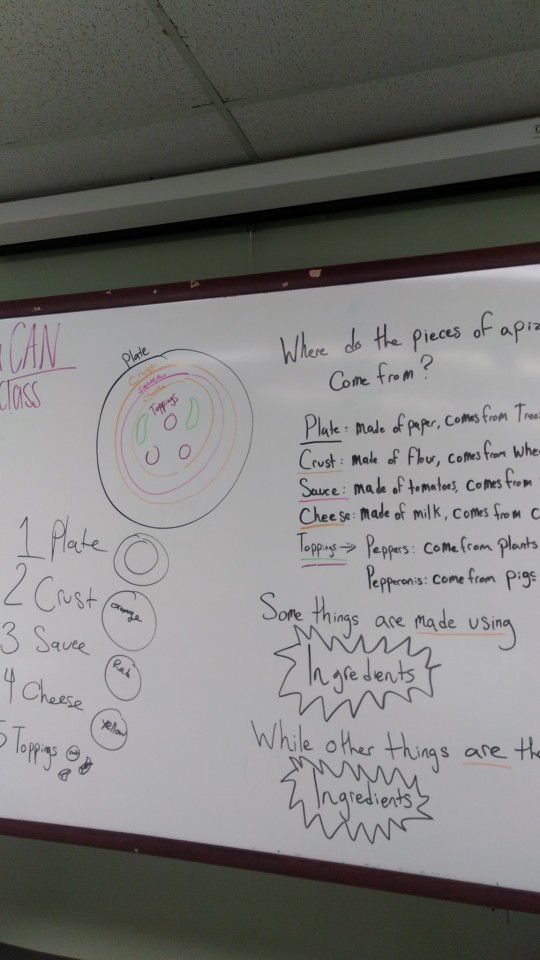 CAN
class
Plate
Crust
Sauce
Cheese
Toppings
1 Plate
2 Crust
orange
3 Sauce
Red
4 Cheese
yellow
5 Toppings
Where do the pieces of a piz
Come from?
Plate: made of paper, comes from Tree
Crust: made of flour, comes from Whe
Sauce: made of tomatoes, comes from
Cheese: made of milk, comes from c
Toppings → Peppers: come from plants
Pepperonis: come from pigs
Some things are made using
Ingredients
While other things are the
Ingredients